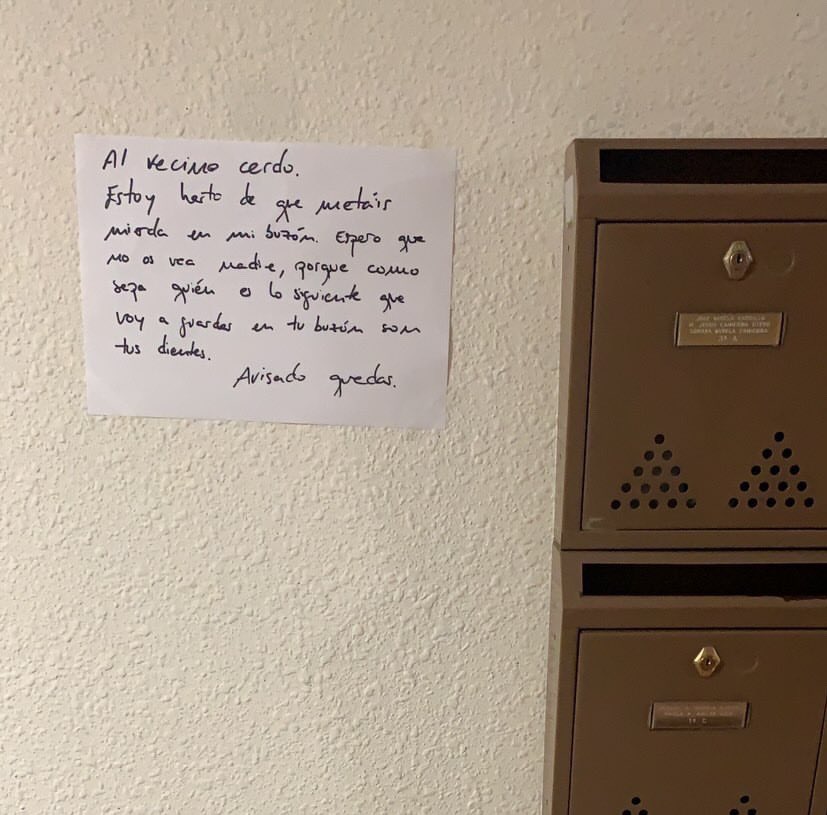 Al vecino cerdo.
Estoy harto de que metáis
mierda en mi buzón. Espero que
no os vea nadie, porque como
sepa quién es lo siguiente que
voy a guardar en tu buzón son
tus dientes.
Avisado quedas.
3º A
1º C